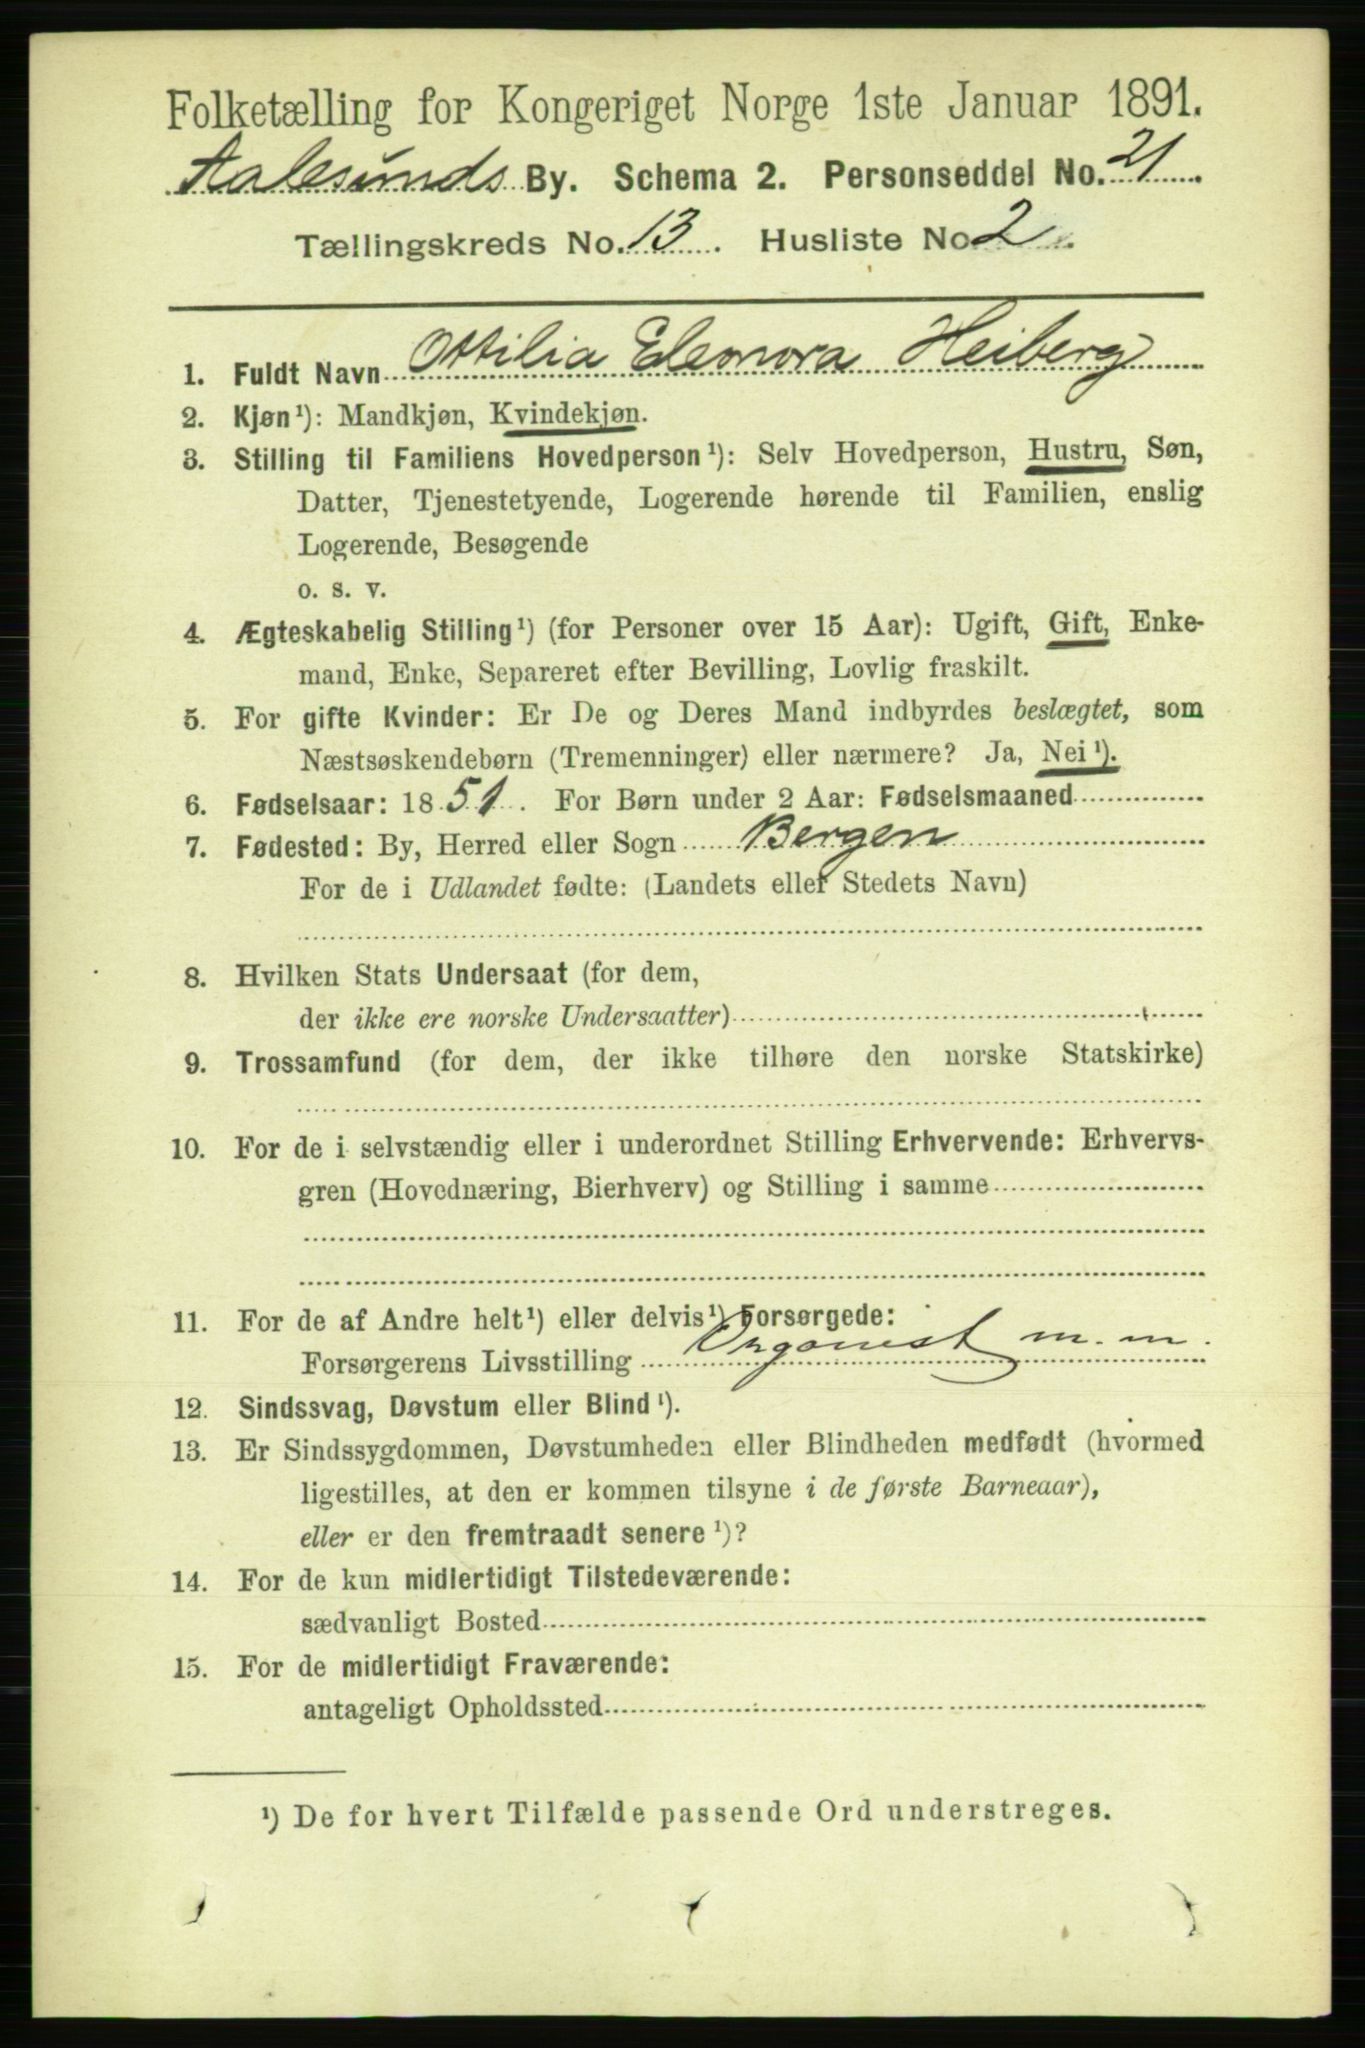 Folketælling for Kongeriget Norge 1ste Januar 1891.
Aalesunds By. Schema 2. Personseddel No. 21
Tællingskreds No. 13. Husliste No 2.
1. Fuldt Navn Ottilia Eleonora Heiberg
2. Kjøn¹): Mandkjøn, Kvindekjøn.
3. Stilling til Familiens Hovedperson¹): Selv Hovedperson, Hustru, Søn,
Datter, Tjenestetyende, Logerende hørende til Familien, enslig
Logerende, Besøgende
o. s. v.
4. Ægteskabelig Stilling¹) (for Personer over 15 Aar): Ugift, Gift, Enke-
mand, Enke, Separeret efter Bevilling, Lovlig fraskilt.
5. For gifte Kvinder: Er De og Deres Mand indbyrdes beslægtet, som
Næstsøskendebørn (Tremenninger) eller nærmere? Ja, Nei¹).
6. Fødselsaar: 1851. For Børn under 2 Aar: Fødselsmaaned
7. Fødested: By, Herred eller Sogn Bergen
For de i Udlandet fødte: (Landets eller Stedets Navn)
8. Hvilken Stats Undersaat (for dem,
der ikke ere norske Undersaatter)
9. Trossamfund (for dem, der ikke tilhøre den norske Statskirke)
10. For de i selvstændig eller i underordnet Stilling Erhvervende: Erhvervs-
gren (Hovednæring, Bierhverv) og Stilling i samme
11. For de af Andre helt¹) eller delvis¹) Forsørgede:
Forsørgerens Livsstilling Organist m. m.
12. Sindssvag, Døvstum eller Blind¹).
13. Er Sindssygdommen, Døvstumheden eller Blindheden medfødt (hvormed
ligestilles, at den er kommen tilsyne i de første Barneaar),
eller er den fremtraadt senere¹)?
14. For de kun midlertidigt Tilstedeværende:
sædvanligt Bosted
15. For de midlertidigt Fraværende:
antageligt Opholdssted
¹) De for hvert Tilfælde passende Ord understreges.